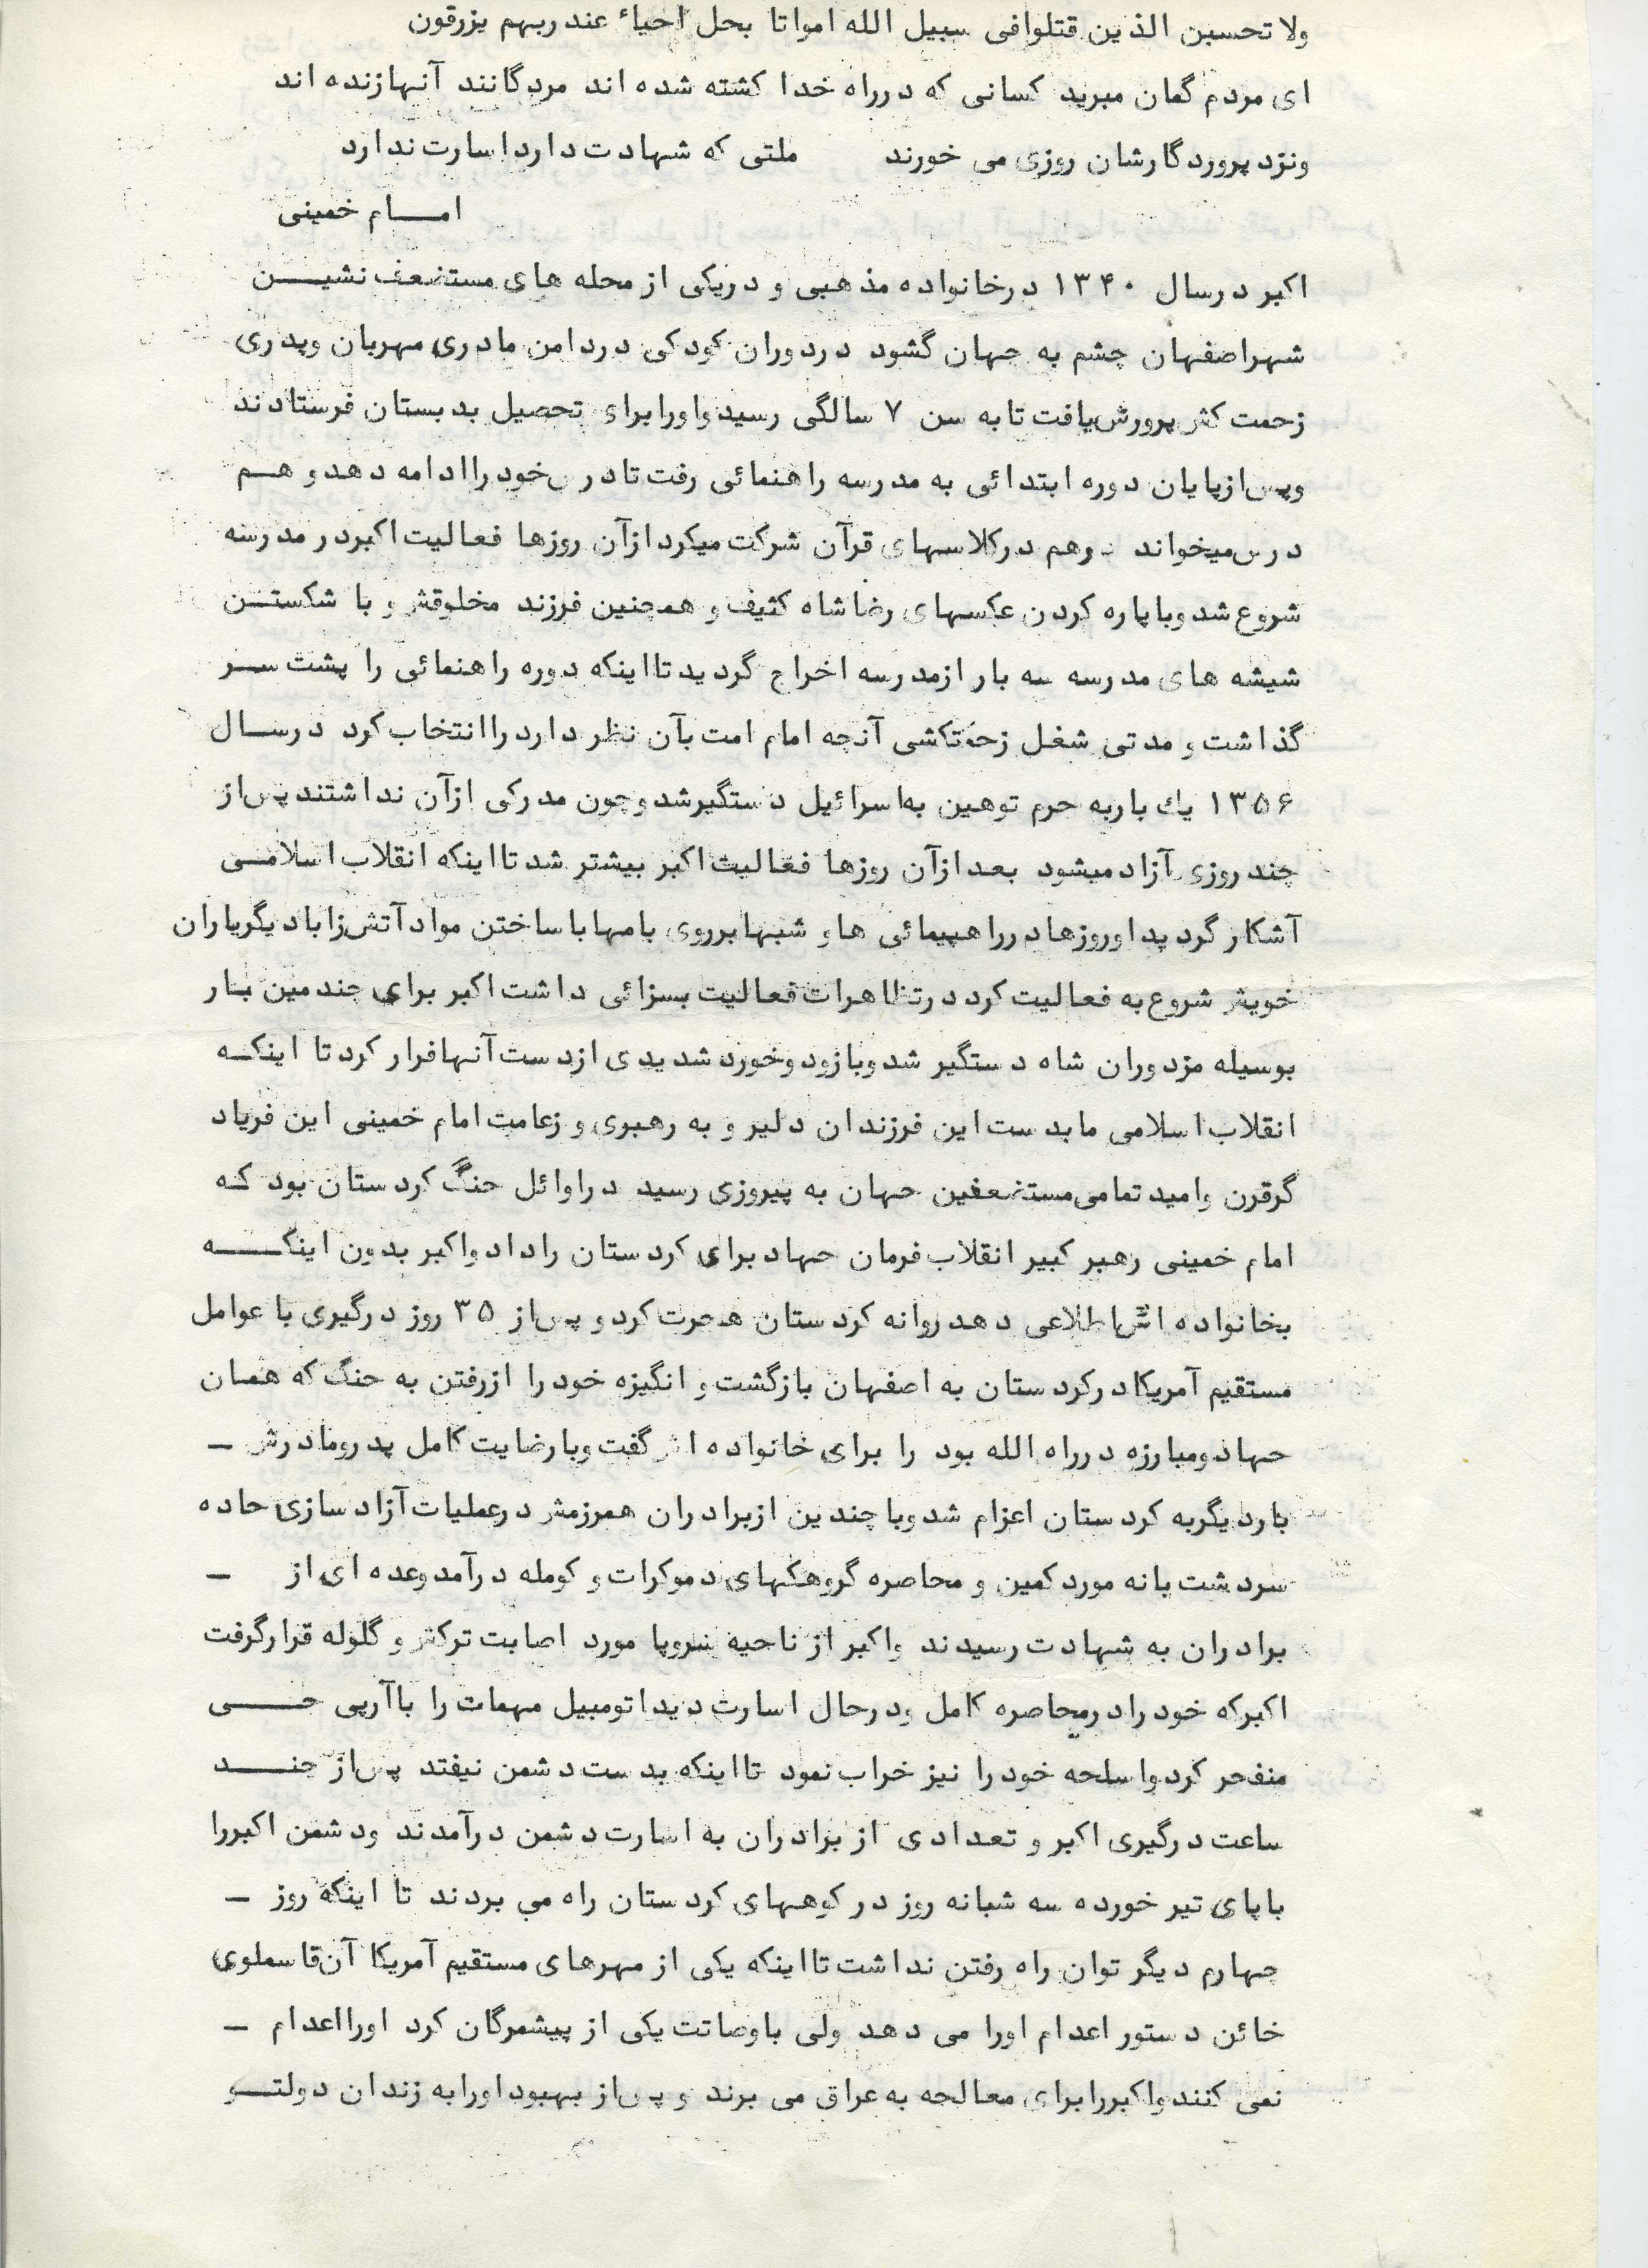 ولا تحسبن الذين قتلوافى سبيل الله امواتا بحل احياء عند ربهم يزرقون
ای مردم گمان مبرید کسانی که درراه خدا کشته شده اند مردگانند آنهازنده اند
ونزد پروردگارشان روزی می خورند ملتی که شهادت دارد اسارت ندارد
امـــام خمینی
اکبر درسال ۱۳۴۰ درخانواده مذهبی و دریکی از محله های مستضعف نشیـــن
شهراصفهان چشم به جهان گشود دردوران کودکی دردامن مادری مهربان وپدری
زحمت کش پرورش یافت تا به سن ۷ سالگی رسید واورابرای تحصیل بدبستان فرستادند
وپس ازپایان دوره ابتدائی به مدرسه راهنمائی رفت تادرس خود راادامه دهد و هــم
درس میخواند و هم درکلاسهای قرآن شرکت میکرد ازآن روزها فعالیت اکبردر مدرسه
شروع شد وباپاره کردن عکسهای رضاشاه کثیف و همچنین فرزند مخلوقش و با شکستــن
شیشه های مدرسه سه بار ازمدرسه اخراج گردید تااینکه دوره راهنمائی را پشت ســر
گذاشت و مدتی شغل زحمتکشی آنچه امام امت بآن نظر دارد راانتخاب کرد درســال
۱۳۵۶ یك باربه جرم توهین به اسرائیل دستگیرشد وچون مدرکی ازآن نداشتند پس از
چند روزی آزاد میشود بعد ازآن روزها فعالیت اکبر بیشتر شد تااینکه انقلاب اسلامـی
آشکار گردید اوروزهادرراهپیمائی ها و شبهابرروی بامهاباساختن مواد آتش زا بادیگریاران
خویش شروع به فعالیت کرد درتظاهرات فعالیت بسزائی داشت اکبر برای چندمین بـار
بوسیله مزدوران شاه دستگیر شد وبازدوخورد شدیدی ازدست آنهافرار کرد تا اینکــه
انقلاب اسلامی مابدست این فرزندان دلیر و به رهبری و زعامت امام خمینی این فریاد
گرقرن وامید تمامی مستضعفین جهان به پیروزی رسید دراوائل جنگ کردستان بود کـه
امام خمینی رهبر کبیر انقلاب فرمان جهاد برای کردستان راداد واکبر بدون اینکـــــه
بخانواده اش اطلاعی دهد روانه کردستان هجرت کرد و پس از ۳۵ روز درگیری با عوامل
مستقیم آمریکا درکردستان به اصفهان بازگشت و انگیزه خود را ازرفتن به جنگ که همـان
جهاد ومبارزه درراه الله بود را برای خانواده اش گفت وبارضایت کامل پدرومادرش ـ
باردیگربه کردستان اعزام شد وبا چندین ازبرادران همرزمش درعملیات آزاد سازی جاده
سردشت بانه مورد کمین و محاصره گروهکهای دموکرات و کومله درآمد وعده ای از ـ
برادران به شهادت رسیدند واکبر از ناحیه سروپا مورد اصابت ترکش و گلوله قرارگرفت
اکبرکه خود رادرمحاصره کامل ودرحال اسارت دید اتومبیل مهمات را باآرپی جــــی
منفجر کرد واسلحه خود را نیز خراب نمود تااینکه بدست دشمن نیفتد پس از چنــــد
ساعت درگیری اکبر و تعدادی از برادران به اسارت دشمن درآمدند ودشمن اکبررا
باپای تیر خورده سه شبانه روز در کوههای کردستان راه می بردند تا اینکه روز ـ
چهارم دیگر توان راه رفتن نداشت تااینکه یکی از مهرهای مستقیم آمریکا آن قاسملوی
خائن دستور اعدام اورا می دهد ولی باوصاتت یکی از پیشمرگان کرد اورااعدام ـ
نمی کنند واکبررابرای معالجه به عراق می برند و پس از بهبود اورابه زندان دولتــو